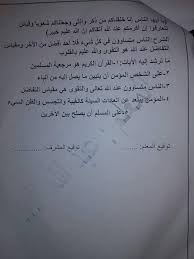 يا أيها الناس إنا خلقناكم من ذكر وأنثى وجعلناكم شعوبا وقبائل
لتعارفوا إن أكرمكم عند الله أتقاكم إن الله عليم خبير)
الشرح: الناس متساوون في كل شيء فلا أحد أفضل من الآخر ومقياس
التفاضل عند الله هو التقوى والله عليم بالقلوب
ما ترشد إليه الآيات: ١-القرآن الكريم هو مرجعية المسلمين
٢-على الشخص المؤمن أن يتبين ما يصل إليه من أنباء
٣-الناس متساوون عند الله تعالى والتقوى هي مقياس التفاضل
٤-المؤمن يبتعد عن العادات السيئة كالغيبة والتجسس والظن السيئ
٥-على المسلم أن يصلح بين الآخرين
توقيع المعلم: توقيع المشرف: